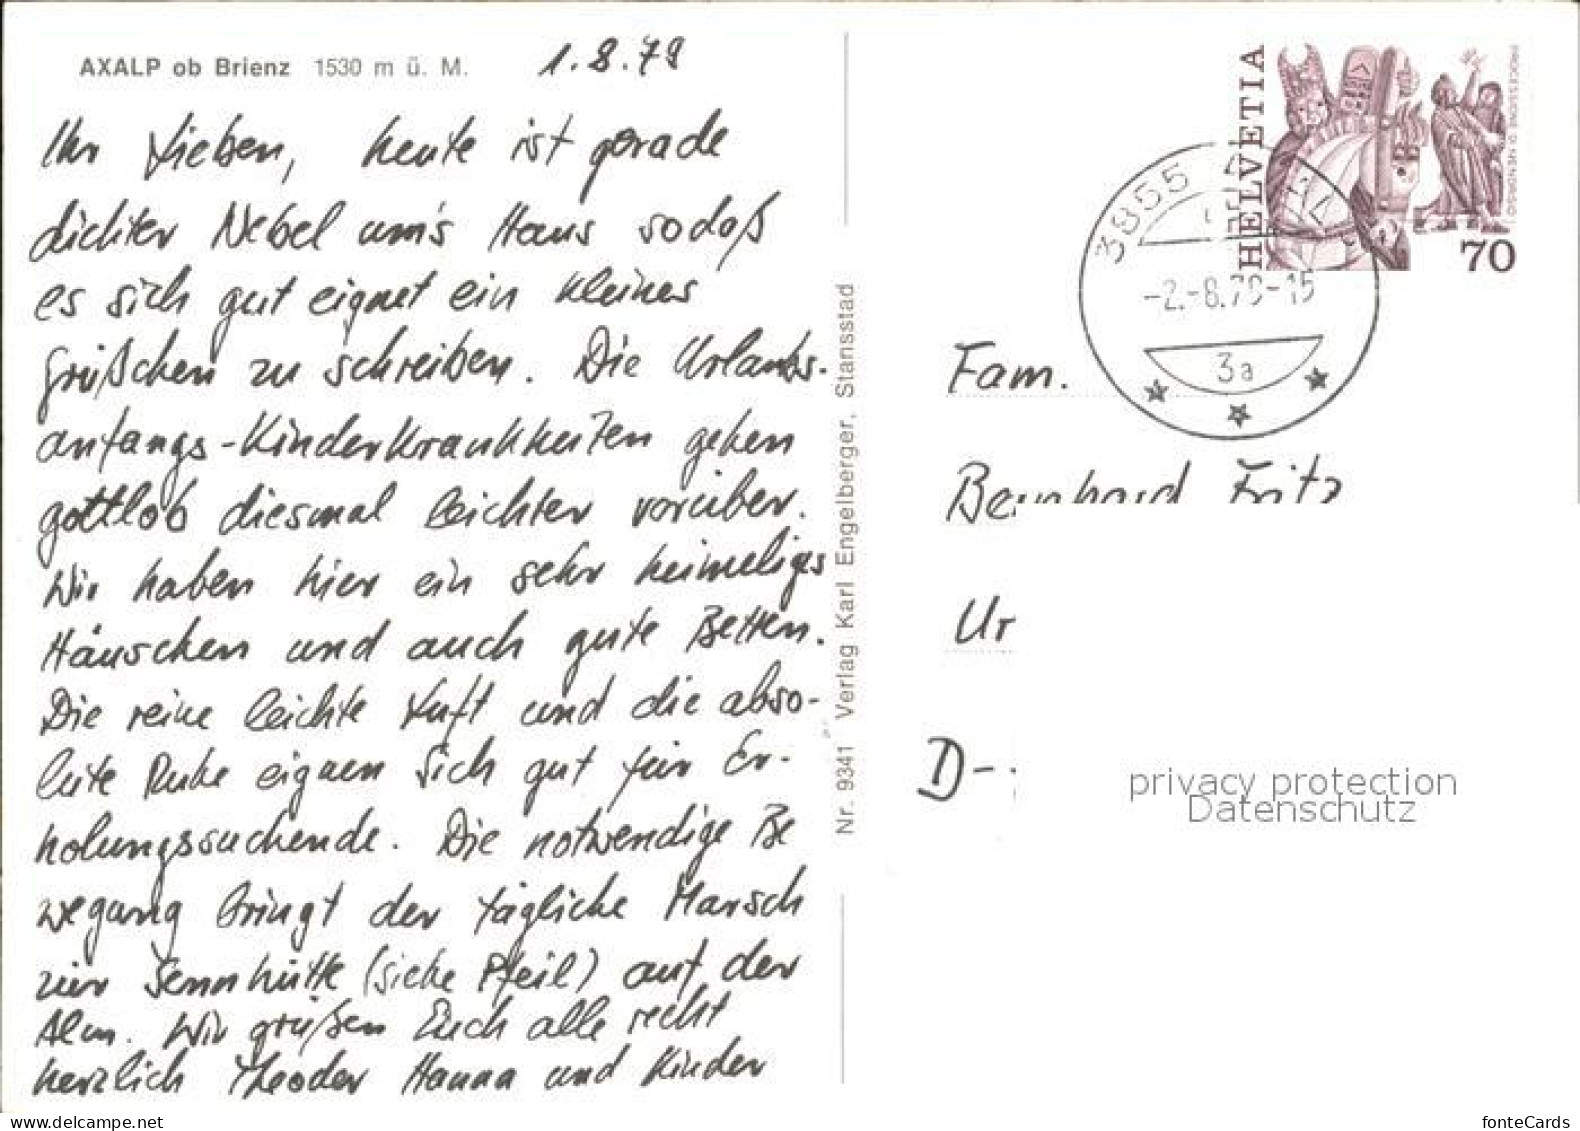 AXALP ob Brienz 1530 m ü. M.
1.8.79
Ihr Lieben, heute ist gerade
dichter Nebel um's Haus sodaß
es sich gut eignet ein kleines
Grüßchen zu schreiben. Die Urlaubs-
anfangs-Kinderkrankheiten gehen
gottlob diesmal leichter vorüber.
Wir haben hier ein sehr heimeliges
Häuschen und auch gute Betten.
Die reine leichte Luft und die abso-
lute Ruhe eignen sich gut für Er-
holungssuchende. Die notwendige Be
wegung bringt der tägliche Marsch
zur Sennhütte (siehe Pfeil) auf der
Alm. Wir grüßen Euch alle recht
herzlich Theodor Hanna und Kinder
Nr. 9341 Verlag Karl Engelberger, Stansstad
HELVETIA
PROCESSIONE D. MENDRISIO
70
3855
-2.-8.79-15
3a
Fam.
Bernhard Fritz
Ur
D-
privacy protection
Datenschutz
fonteCards